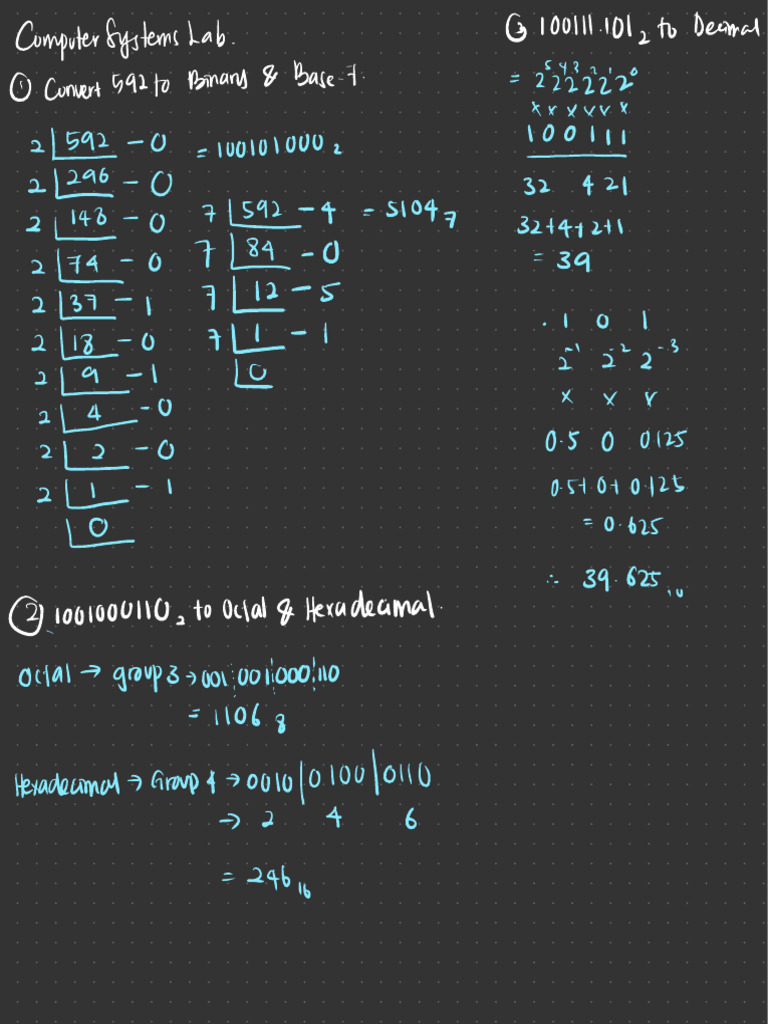 Computer Systems Lab.
① Convert 592 to Binary & Base-7.
2 592 - 0
2 296 - 0
2 148 - 0
2 74 - 0
2 37 - 1
2 18 - 0
2 9 - 1
2 4 - 0
2 2 - 0
2 1 - 1
0
= 1001010000₂
7 592 - 4 = 5104₇
7 84 - 0
7 12 - 5
7 1 - 1
0
② 1001000110₂ to Octal & Hexadecimal.
Octal → group 3 → 001 001 000 110
= 1106₈
Hexadecimal → Group 4 → 0010 | 0100 | 0110
→ 2 4 6
= 246₁₆
③ 100111.101₂ to Decimal
= 2⁵ 2⁴ 2³ 2² 2¹ 2⁰
x x x x x x
1 0 0 1 1 1
32 4 2 1
32+4+2+1
= 39
. 1 0 1
2⁻¹ 2⁻² 2⁻³
x x x
0.5 0 0.125
0.5+0+0.125
= 0.625
∴ 39.625₁₀